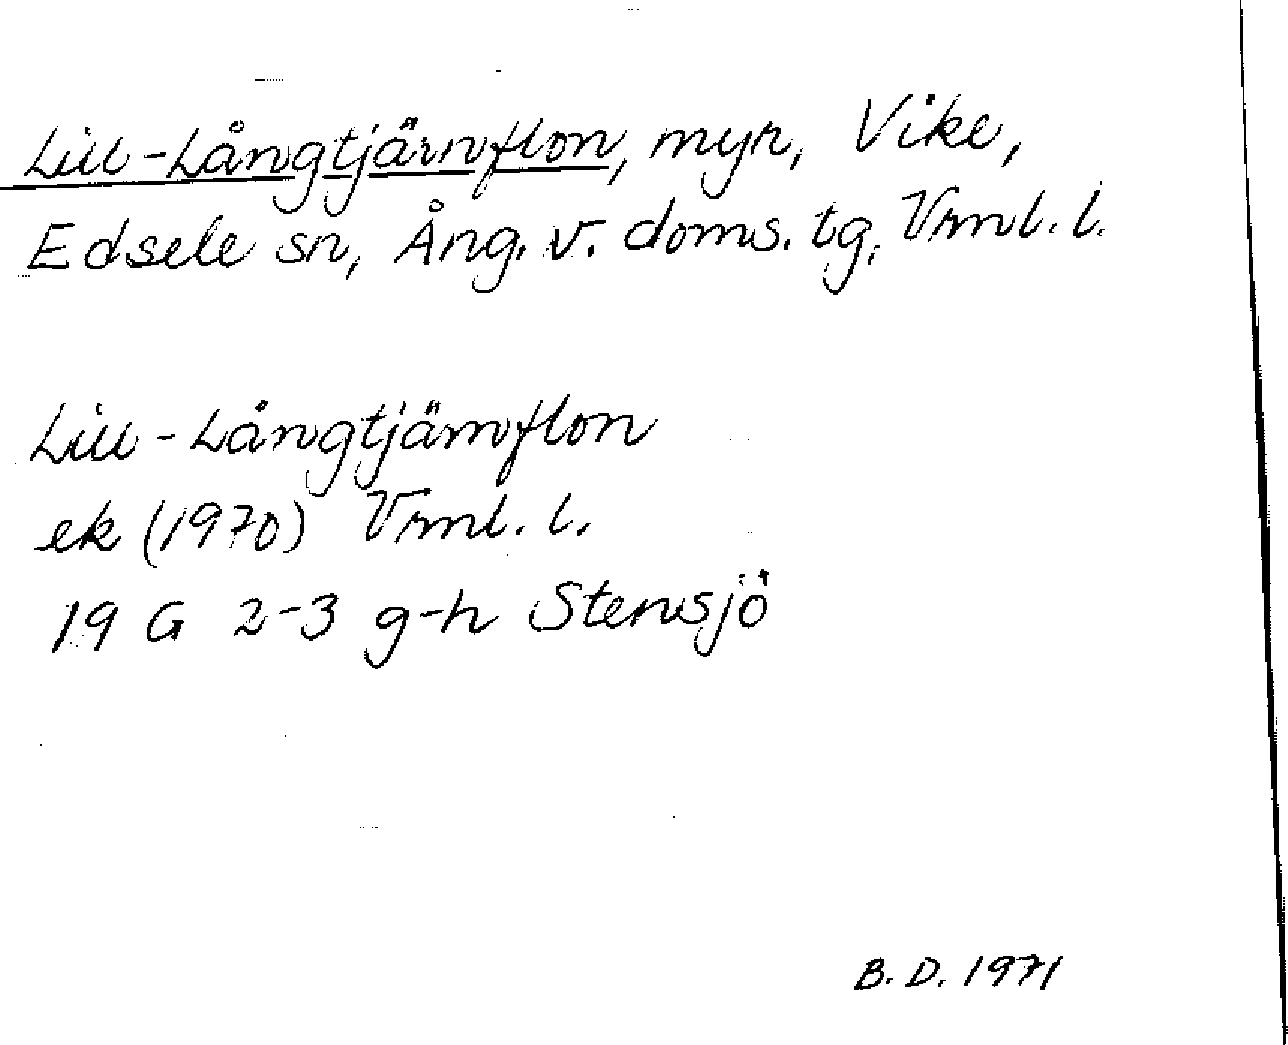 Lill-Långtjärnflon, myr, Vike,
Edsele sn, Ång. v. doms. tg. Vrml. l.
Lill-Långtjärnflon
ek (1970) Vrml. l.
19 G 2-3 g-h Stensjö
B. D. 1971